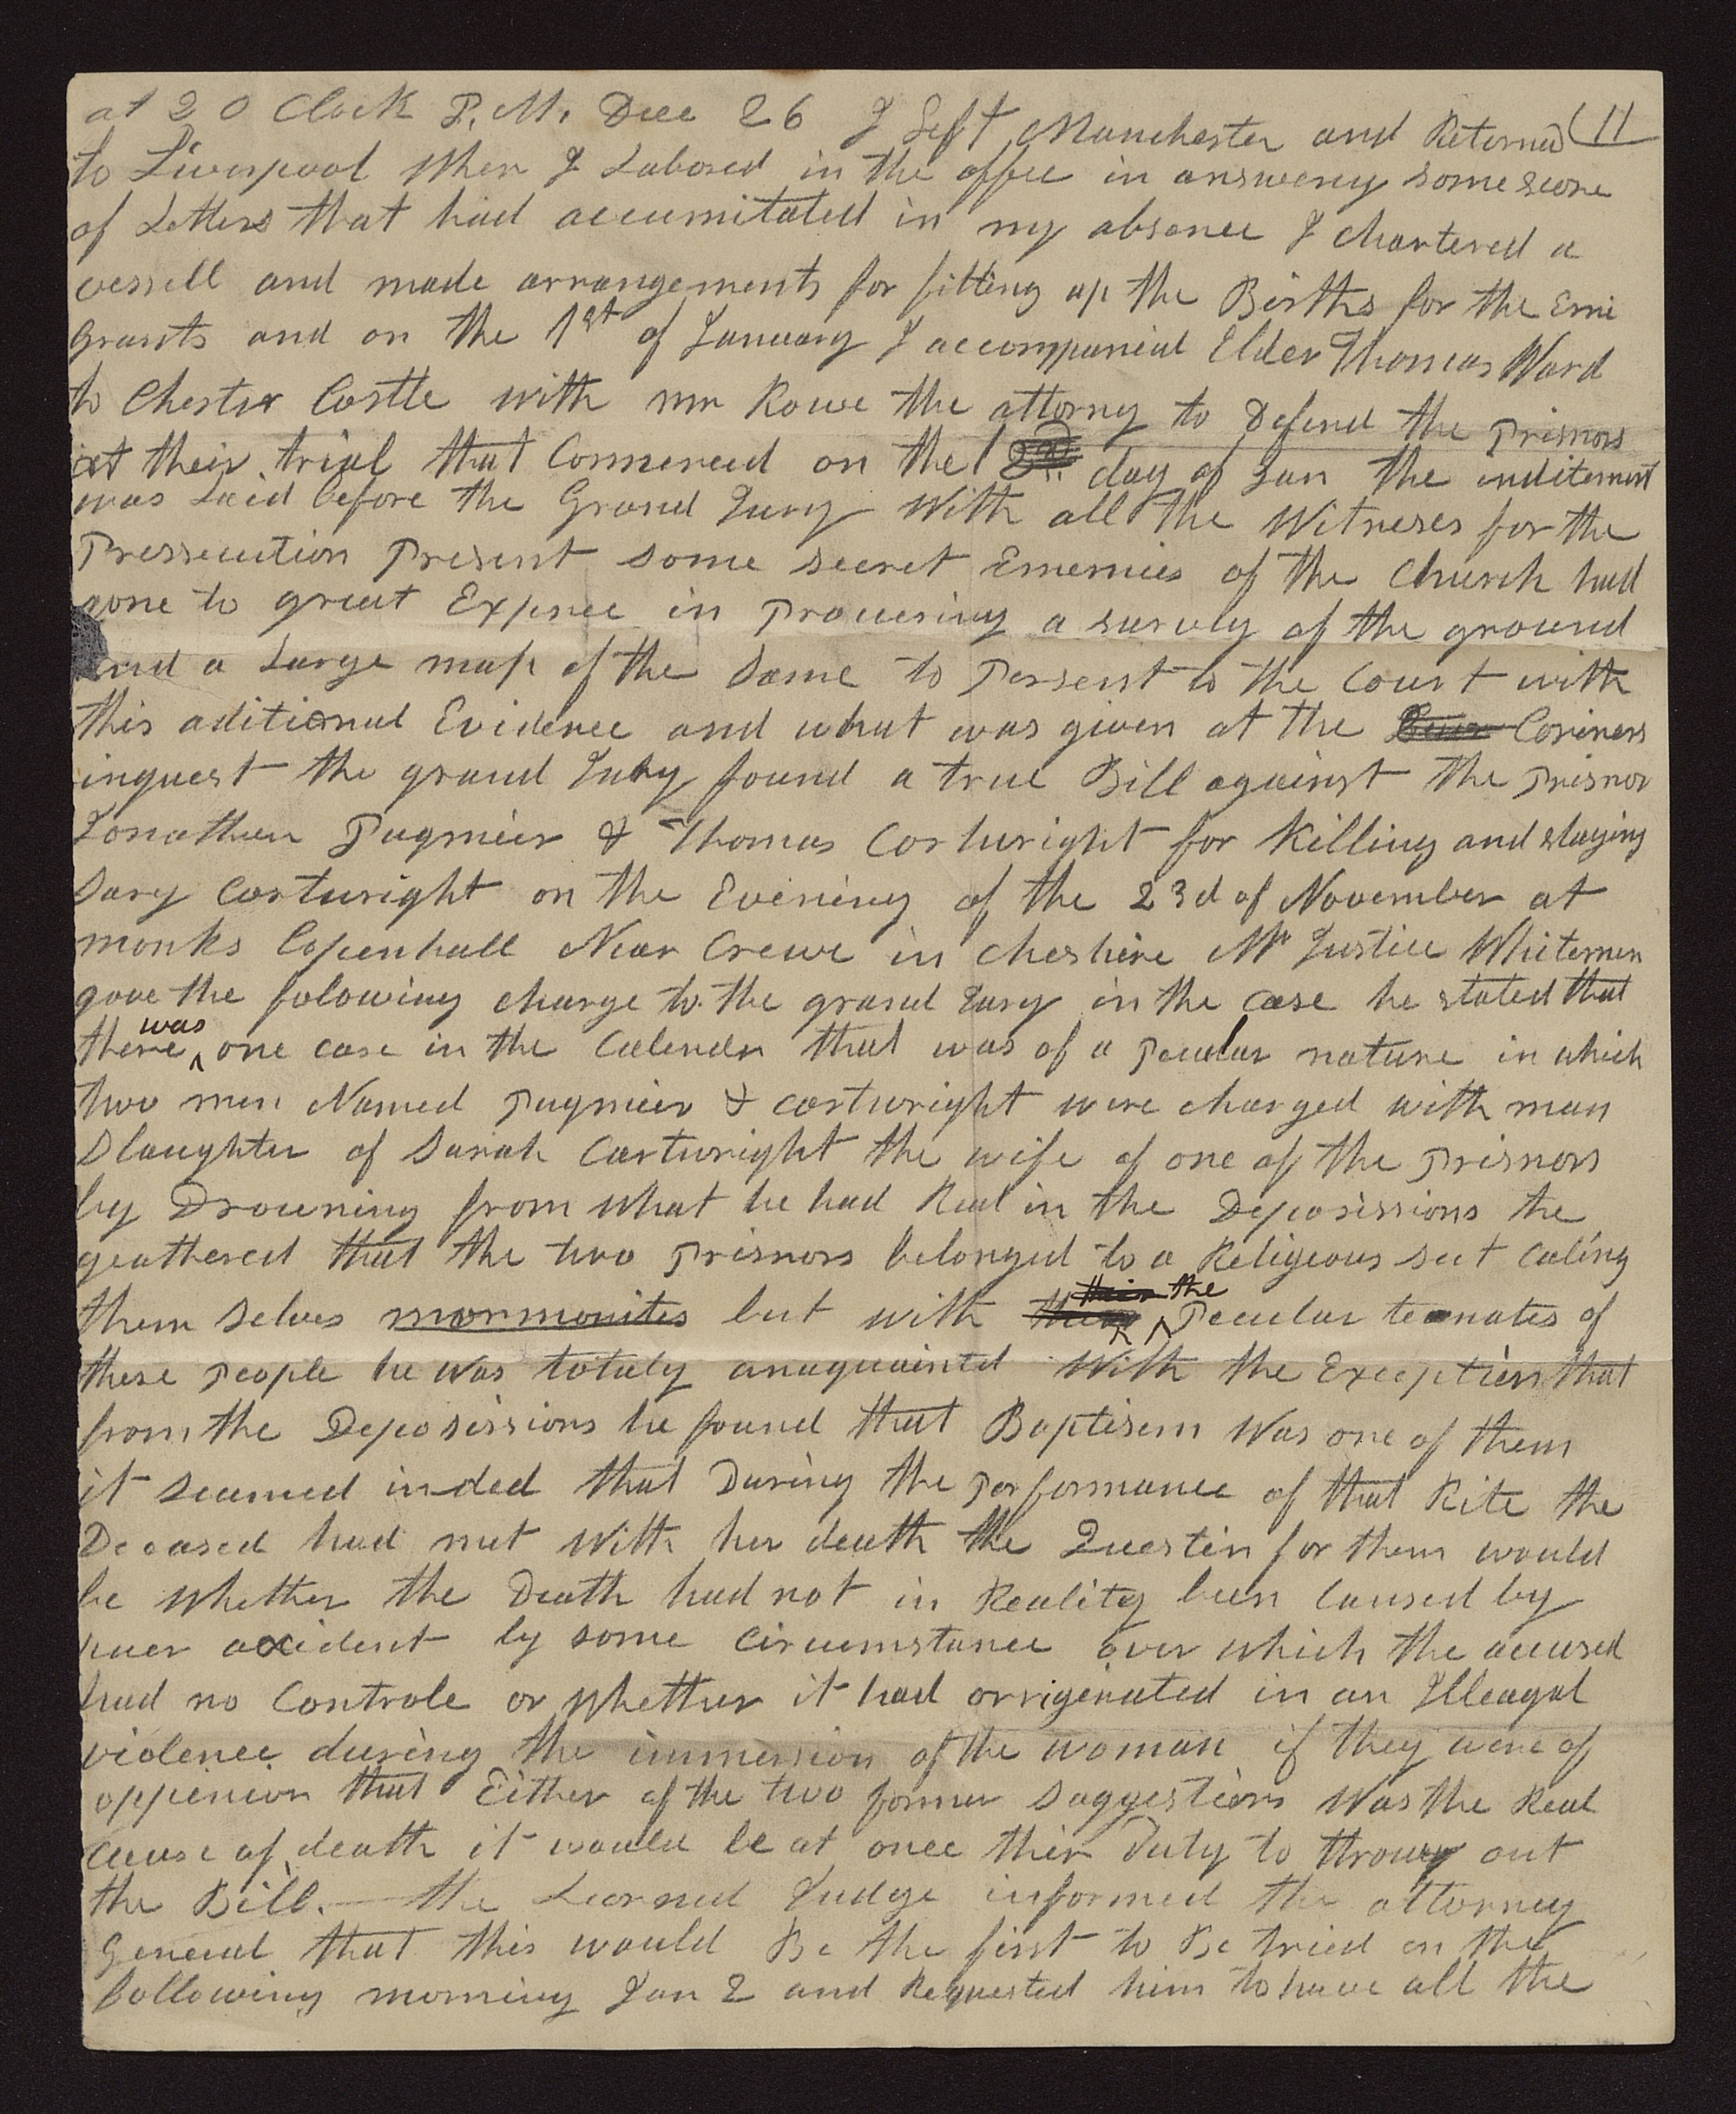 at 2 O Clock P. M. Dec 26 I Left Manchester and Returned (11
to Liverpool Wher I Labored in the offce in answering some score
of Letters that had accumitated in my absence I chartered a
vessell and made arrangements for fitting up the Births for the Emi
grants and on the 1st of January I accompanied Elder Thomas Ward
to Chester Castle with mr Rowe the attorny to Defend the prisnors
at their trial that Commenced on the 1 day of Jan the inditement
was Laid before the Grand Jury With all the Witneses for the
Pressecution Present some secret Enemies of the Church had
gone to great Expence in procuering a survey of the ground
and a Large map of the Same to persent to the Court with
this aditional Evidence and what was given at the Coriners
inquest the grand Jury found a true Bill against the prisnor
Jonathan Pugmier & Thomas Cartwright for Killing and slaying
Sary Cartwright on the Evening of the 23d of November at
monks Copenhall Near Crewe in Cheshire Mr Justice Whitemen
gave the folowing charge to the grand Jury in the case he stated that
there was one case in the Calender that was of a peculur nature in which
two men Named pugmier & cartwright were charged with man
Slaughter of Sarah Cartwright the wife of one of the prisnors
by Drowning from what he had Read in the Deposissions he
geathered that the two prisnors belonged to a Religeous sect Caling
them Selves mormonites but with their the Peculur teanates of
these people he was totaly anaquainted With the Exception that
from the Deposissions he found that Baptisem Was one of them
it seamed inded that During the performance of that Rite the
Deceased had met With her death the Question for them would
be Whether the Death had not in Reality been Caused by
puer accident by some Circumstance over which the accused
had no Controle or Whether it had orrigenated in an Illeagal
violence dureing the immersion of the woman if they were of
oppenion that Either of the two former Suggestions Was the Real
Cause of death it would be at once thier Duty to throw out
the Bill. — the Learned Judge informed the attorney
General that this would Be the first to Be tried on the
following morning Jan 2 and Requested him to have all the